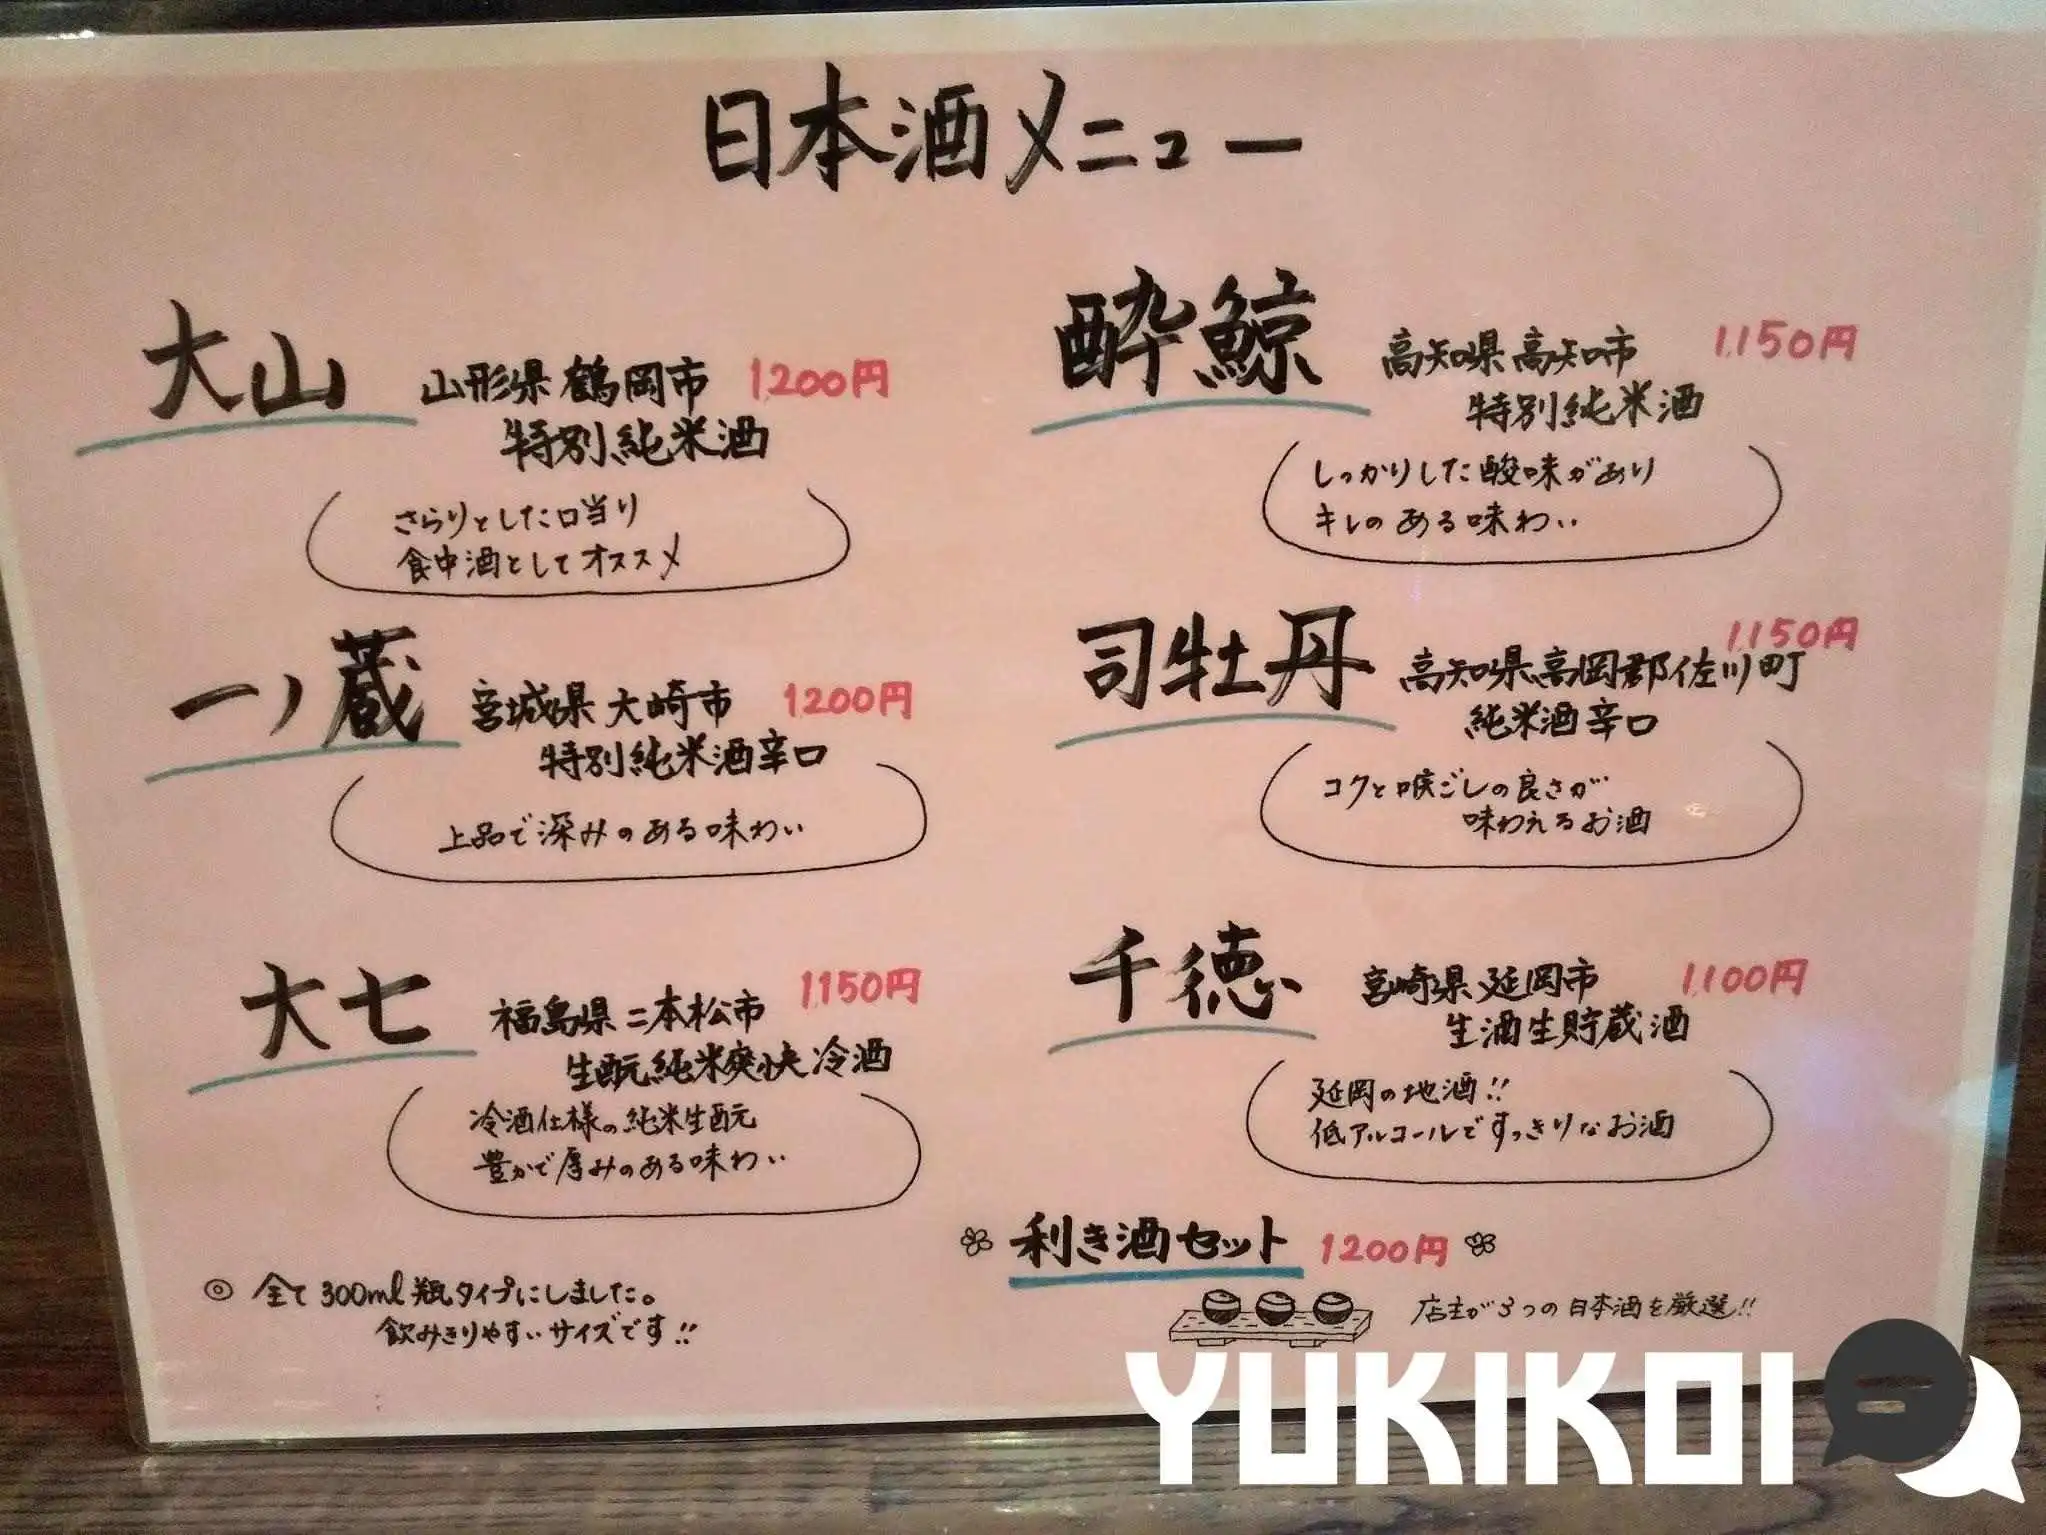 日本酒メニュー
大山 山形県鶴岡市 1,200円
特別純米酒
さらりとした口当り
食中酒としてオススメ
一ノ蔵 宮城県大崎市 1,200円
特別純米酒辛口
上品で深みのある味わい
大七 福島県二本松市 1,150円
生酛純米爽快冷酒
冷酒仕様の純米生酛
豊かで厚みのある味わい
◎ 全て300ml瓶タイプにしました。
飲みきりやすいサイズです!!
酔鯨 高知県高知市 1,150円
特別純米酒
しっかりした酸味があり
キレのある味わい
司牡丹 高知県高岡郡佐川町 1,150円
純米酒辛口
コクと喉ごしの良さが
味わえるお酒
千徳 宮崎県延岡市 1,100円
生酒生貯蔵酒
延岡の地酒!!
低アルコールですっきりなお酒
利き酒セット 1,200円
店主が3つの日本酒を厳選!!
YUKIKOI